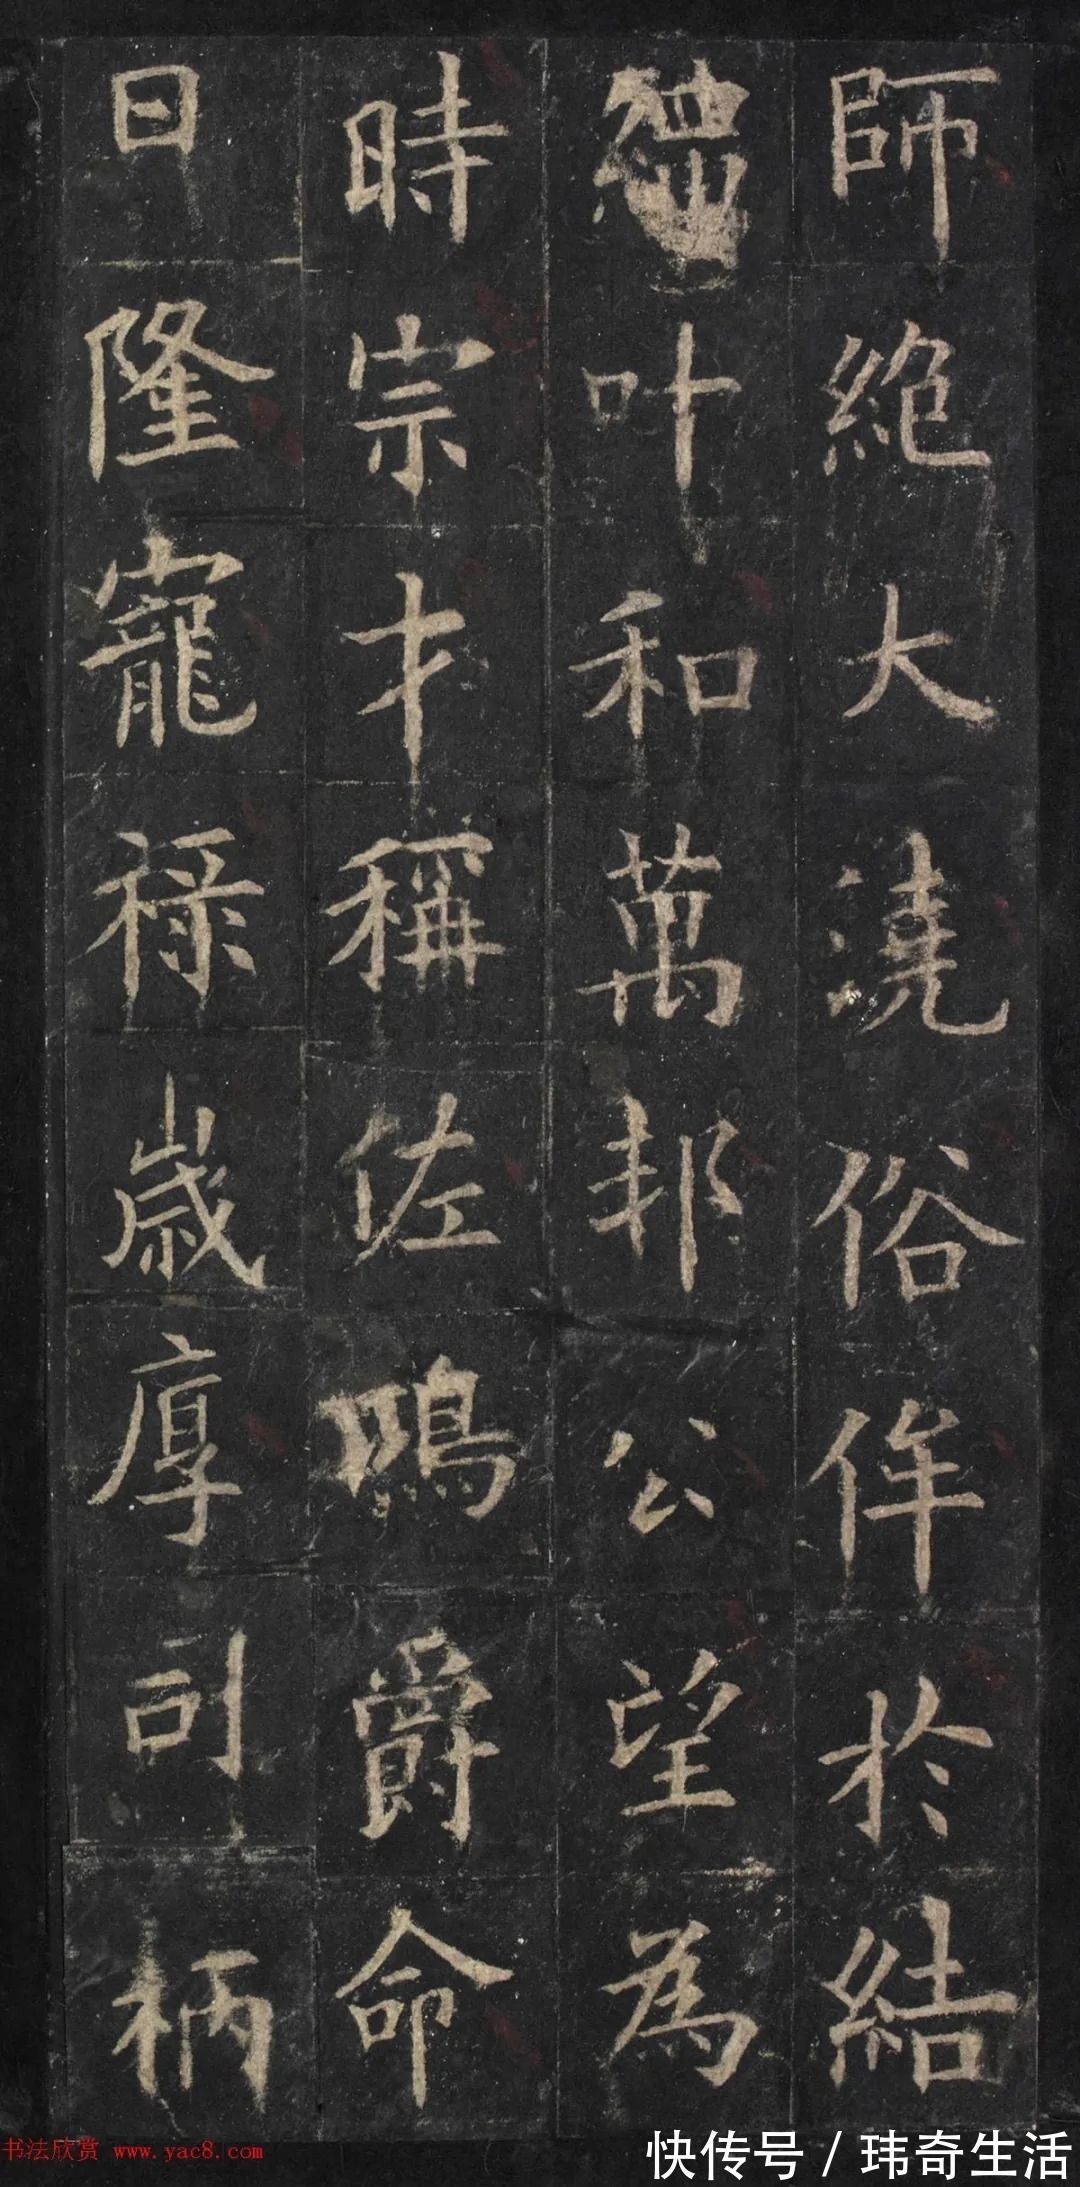 師絶大澆俗侔於結
繩叶和萬邦公望為
時宗才稱佐鳴爵命
日隆寵祿歲厚司柄
书法欣赏 www.yac8.com
快传号 / 玮奇生活